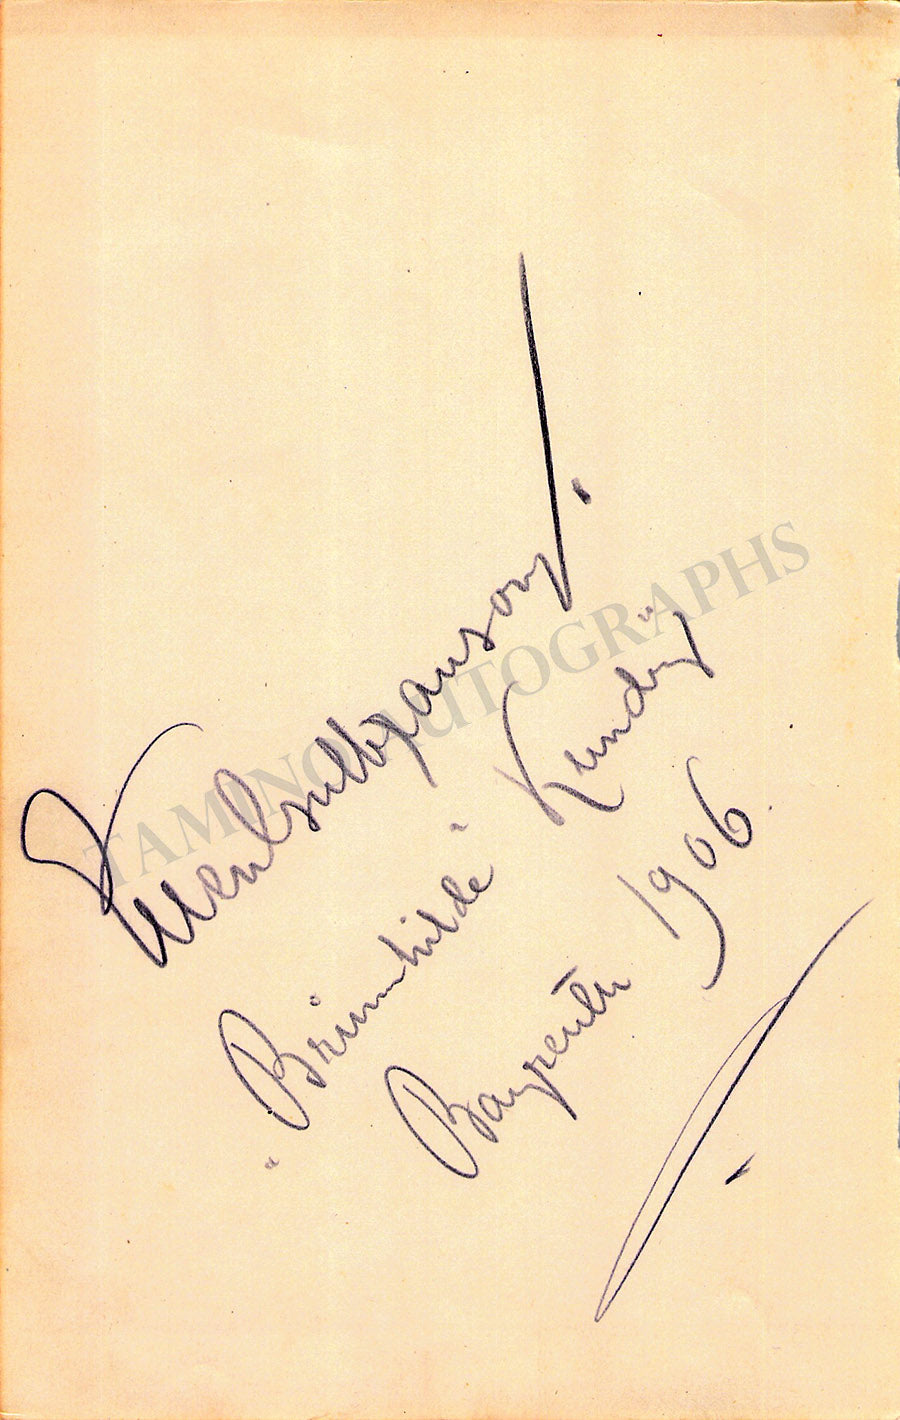 Ellen Gulbranson!
„Brünnhilde" Kundry"
Bayreuth 1906.
TAMINO AUTOGRAPHS